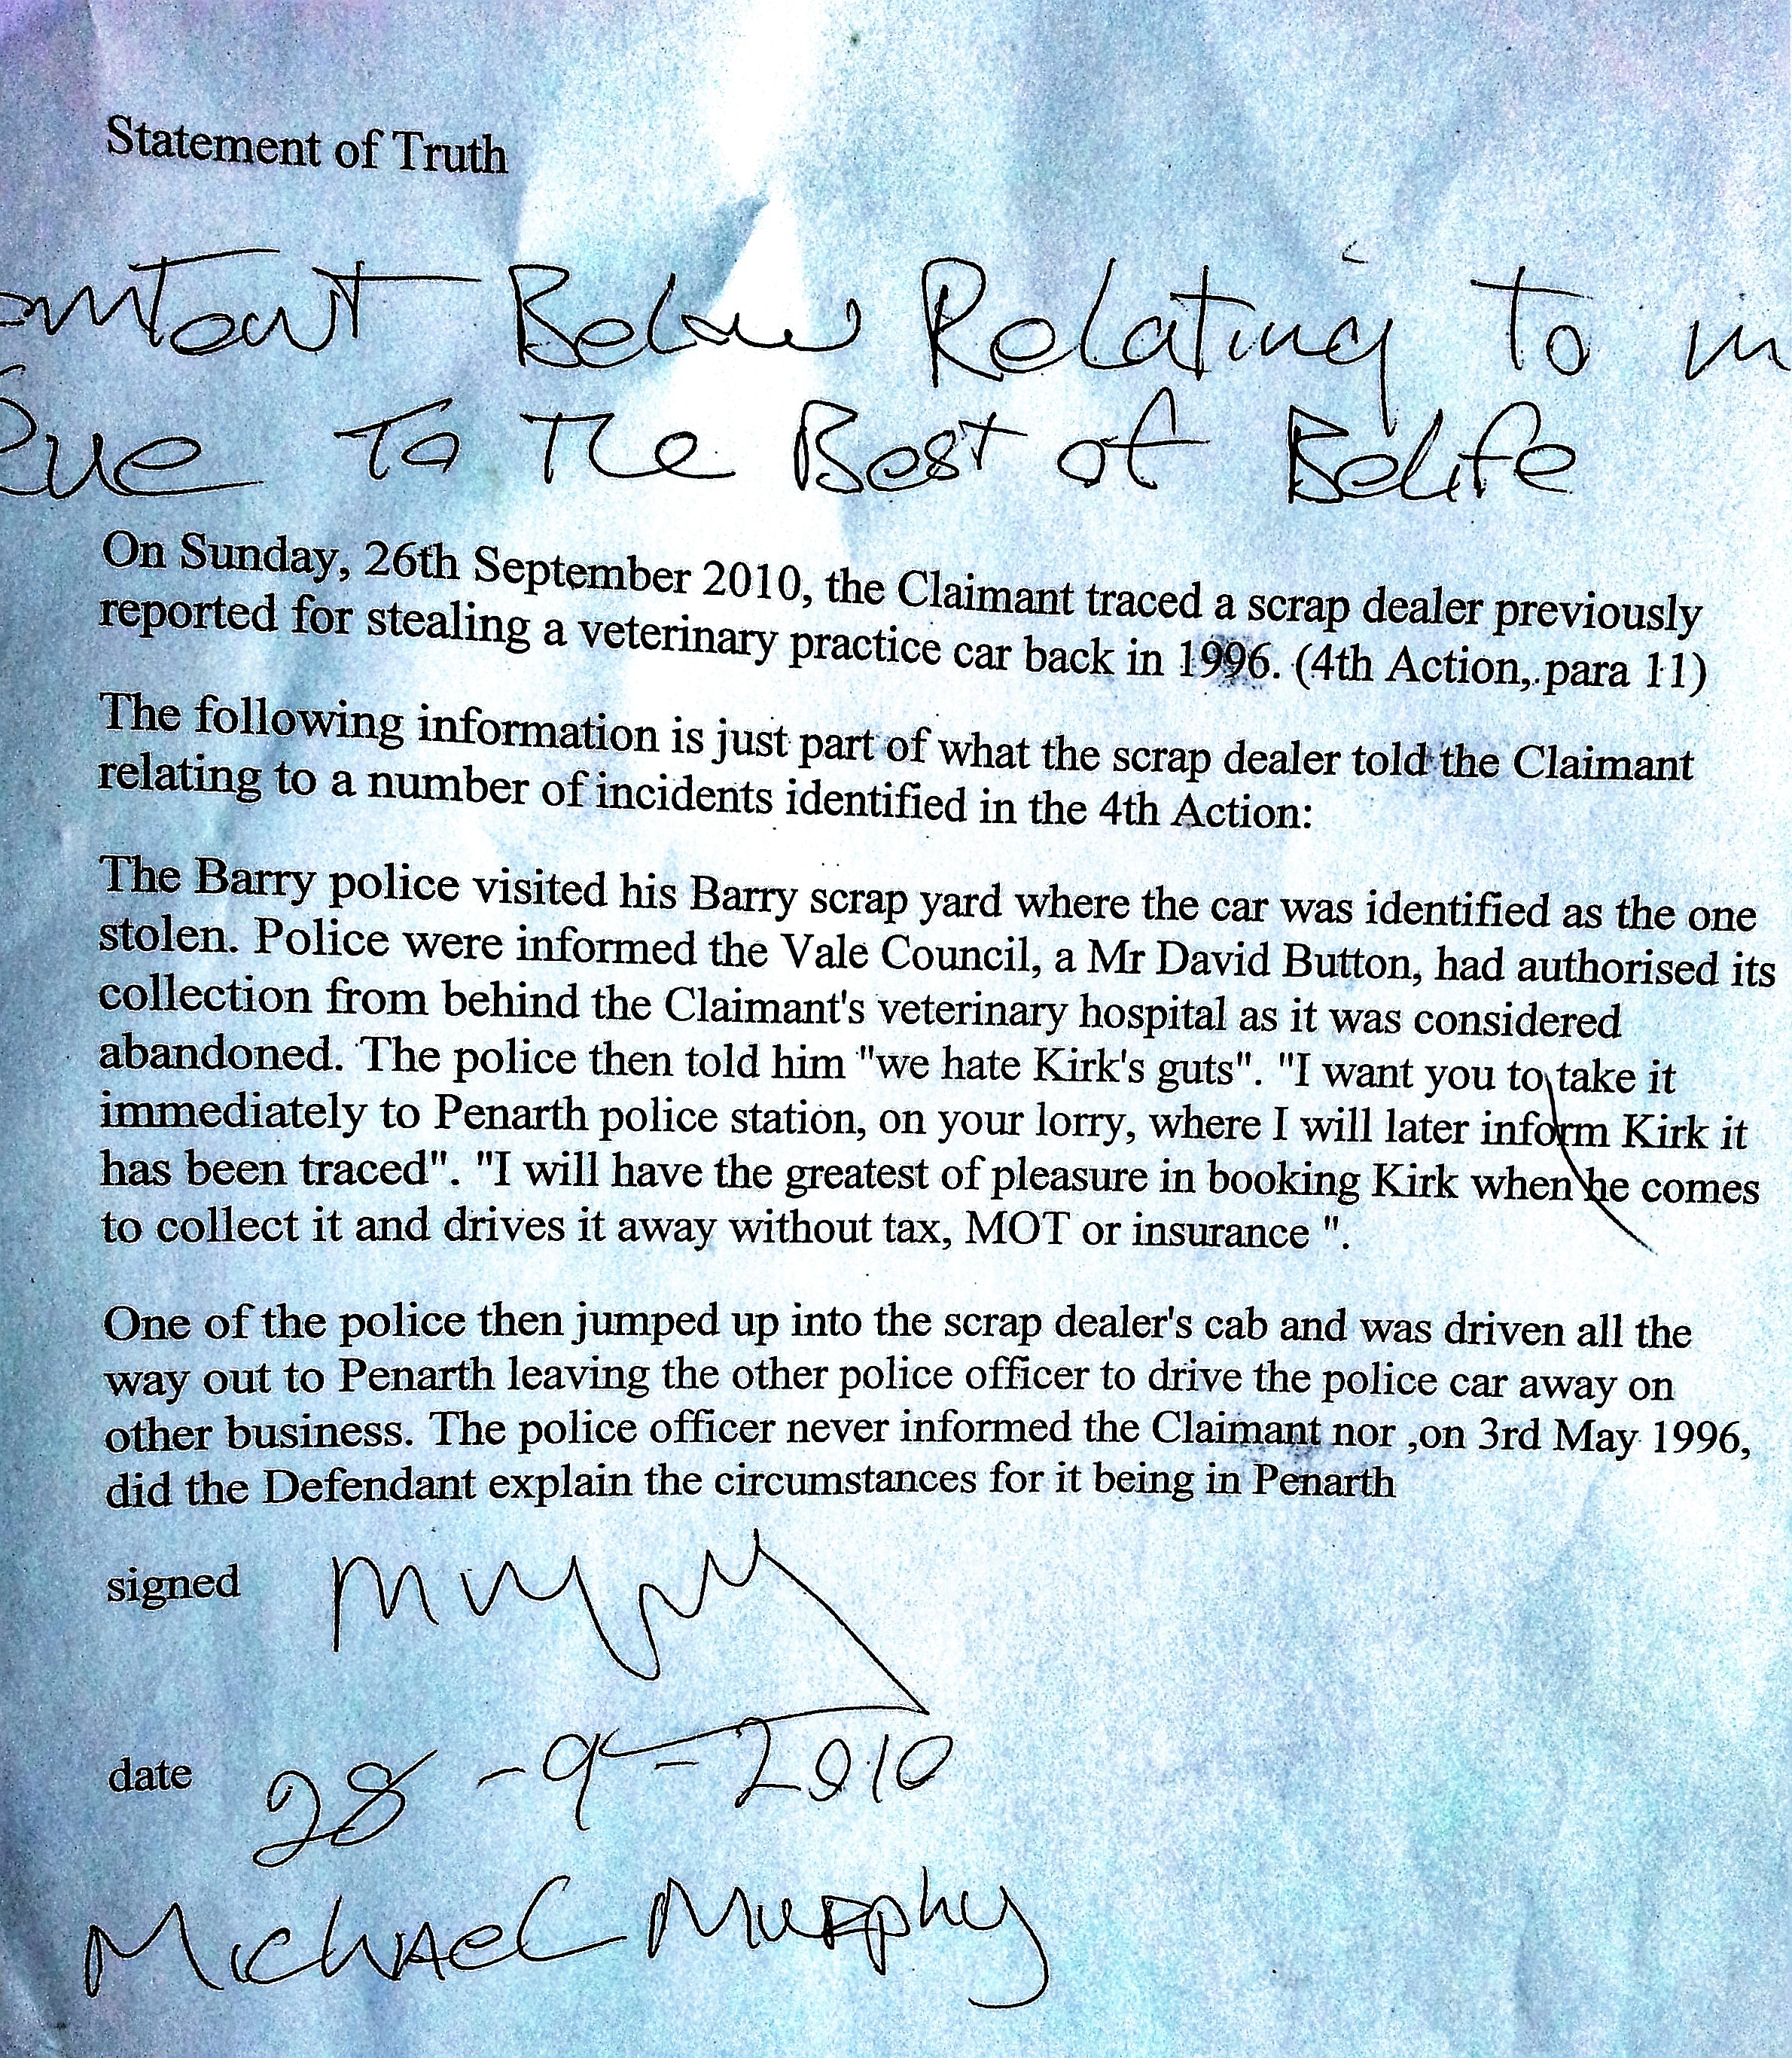 Statement of Truth
ontent Below Relating To m
Rue To The Best of Belife
On Sunday, 26th September 2010, the Claimant traced a scrap dealer previously
reported for stealing a veterinary practice car back in 1996. (4th Action, para 11)
The following information is just part of what the scrap dealer told the Claimant
relating to a number of incidents identified in the 4th Action:
The Barry police visited his Barry scrap yard where the car was identified as the one
stolen. Police were informed the Vale Council, a Mr David Button, had authorised its
collection from behind the Claimant's veterinary hospital as it was considered
abandoned. The police then told him "we hate Kirk's guts". "I want you to take it
immediately to Penarth police station, on your lorry, where I will later inform Kirk it
has been traced". "I will have the greatest of pleasure in booking Kirk when he comes
to collect it and drives it away without tax, MOT or insurance ".
One of the police then jumped up into the scrap dealer's cab and was driven all the
way out to Penarth leaving the other police officer to drive the police car away on
other business. The police officer never informed the Claimant nor ,on 3rd May 1996,
did the Defendant explain the circumstances for it being in Penarth
signed
date 28 - 9 - 2010
Michael Murphy